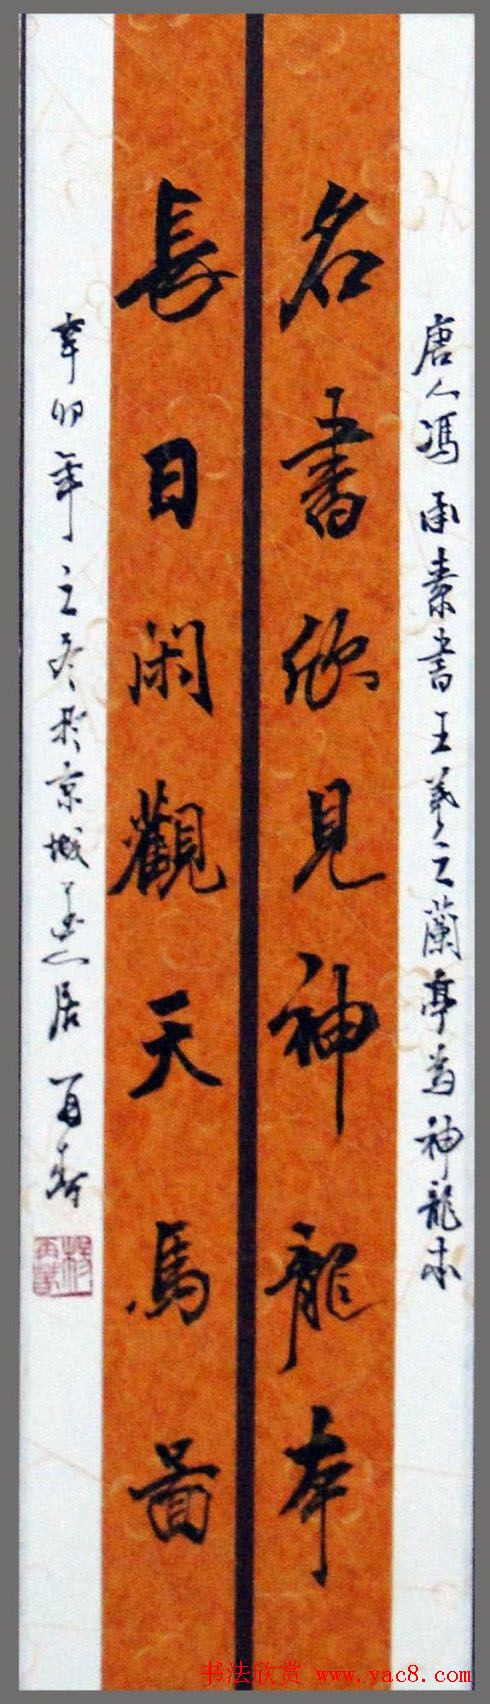 唐人馮承素書王羲之蘭亭為神龍本
名書欣見神龍本
長日閑觀天馬圖
辛卯年之冬於京城居再春
书法欣赏 www.yac8.com